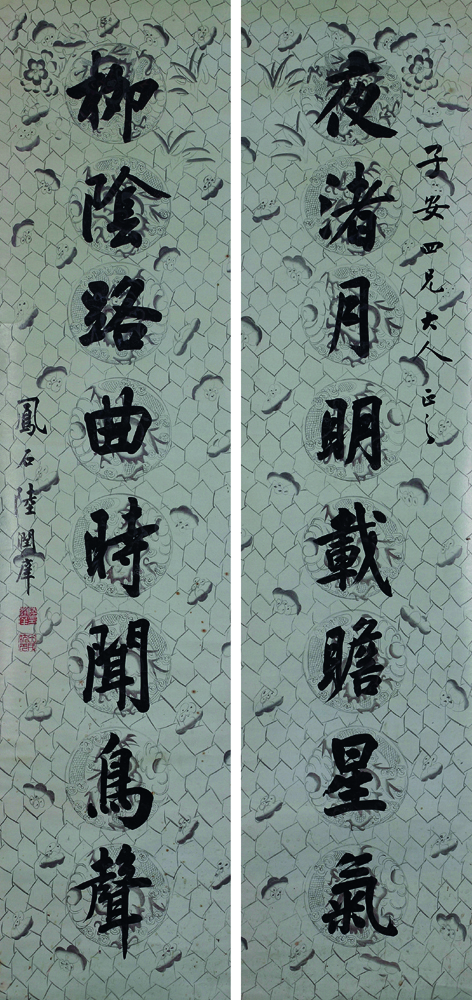 子安四兄大人正之
夜渚月明載瞻星氣
柳陰路曲時聞鳥聲
鳳石陸潤庠